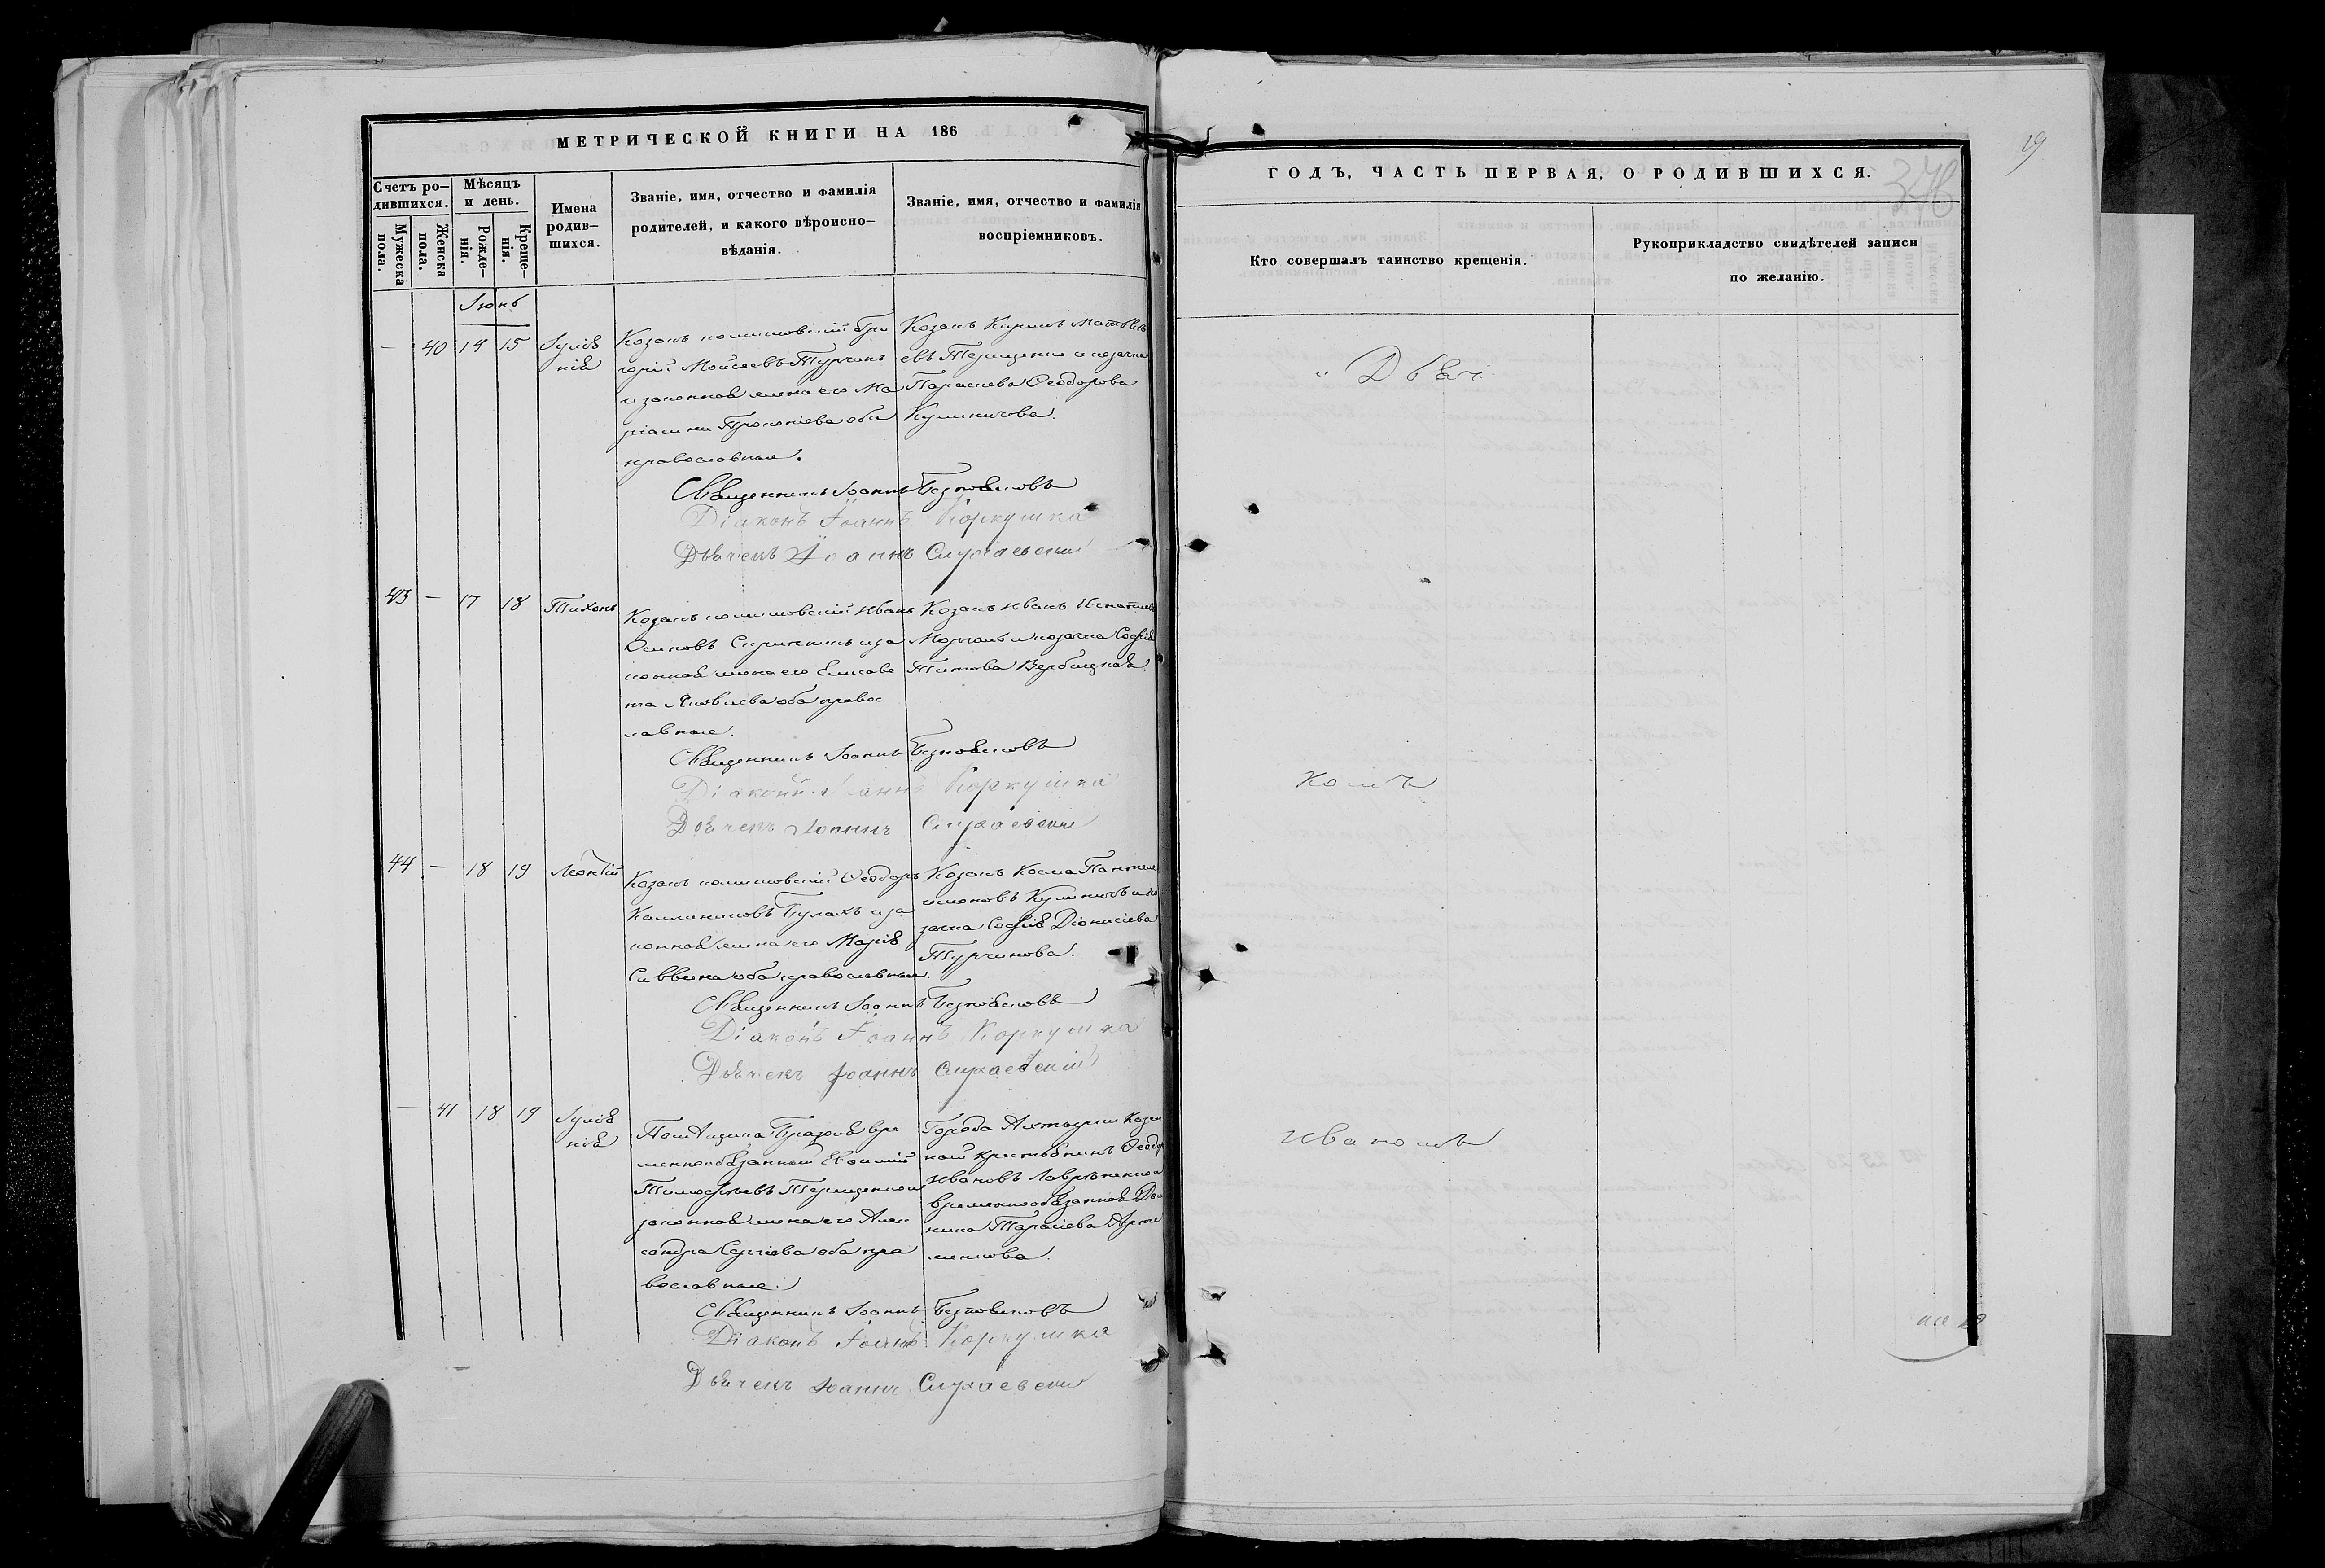 МЕТРИЧЕСКОЙ КНИГИ НА 186
Счетъ ро-
дившихся.
Мужеска
пола.
Женска
пола.
Мѣсяцъ
и день.
Рожде-
нія.
Креще-
нія.
Имена
родив-
шихся.
Званіе, имя, отчество и фамилія
родителей, и какого вѣроиспо-
вѣданія.
Званіе, имя, отчество и фамилія
воспріемниковъ.
Іюнь
— 40 14 15 Іулія
нія
Козакъ Гри
горій Моисеевъ Турчинъ
и законная жена его Ма
Прокопіева оба
православные.
Козакъ Кириллъ Матвѣ
евъ Терещенко и козачка
Параскева Ѳеодорова
Куличова.
Священникъ Іоаннъ
Діаконъ Іоаннъ Коркушка
Дьячекъ Іоаннъ Слухаевскій
43 — 17 18 Тихонъ
Козакъ Иванъ
Осиповъ и за
конная жена его Елисаве
та Яковлева оба правос
лавные.
Козакъ Иванъ Игнатіевъ
и козачка Софія
Титова Вербицкая
Священникъ Іоаннъ
Діаконъ Іоаннъ Коркушка
Дьячекъ Іоаннъ Слухаевскій
44 — 18 19 Леонтій
Козакъ Ѳеодоръ
Каллиниковъ Булахъ и за
конная жена его Марія
Саввина оба православные.
Козакъ Косма Пантеле
имоновъ Куличъ и ко
зачка Софія Діонисіева
Турчинова.
Священникъ Іоаннъ
Діаконъ Іоаннъ Коркушка
Дьячекъ Іоаннъ Слухаевскій
— 41 18 19 Іулія
нія
вре
меннообязанный Евѳимій
Тимоѳеевъ Терещенко и
законная жена его Алек
сандра Сергіева оба пра
вославные.
Города Ахтырки Казен
ный крестьянинъ Ѳеодоръ
Ивановъ
временнообязанная
Тарасіева Арте
менкова.
Священникъ Іоаннъ
Діаконъ Іоаннъ Коркушка
Дьячекъ Іоаннъ Слухаевскій
19
ГОДЪ, ЧАСТЬ ПЕРВАЯ, О РОДИВШИХСЯ.
Кто совершалъ таинство крещенія.
Рукоприкладство свидѣтелей записи
по желанію.
Дьяч
комъ
Иваномъ